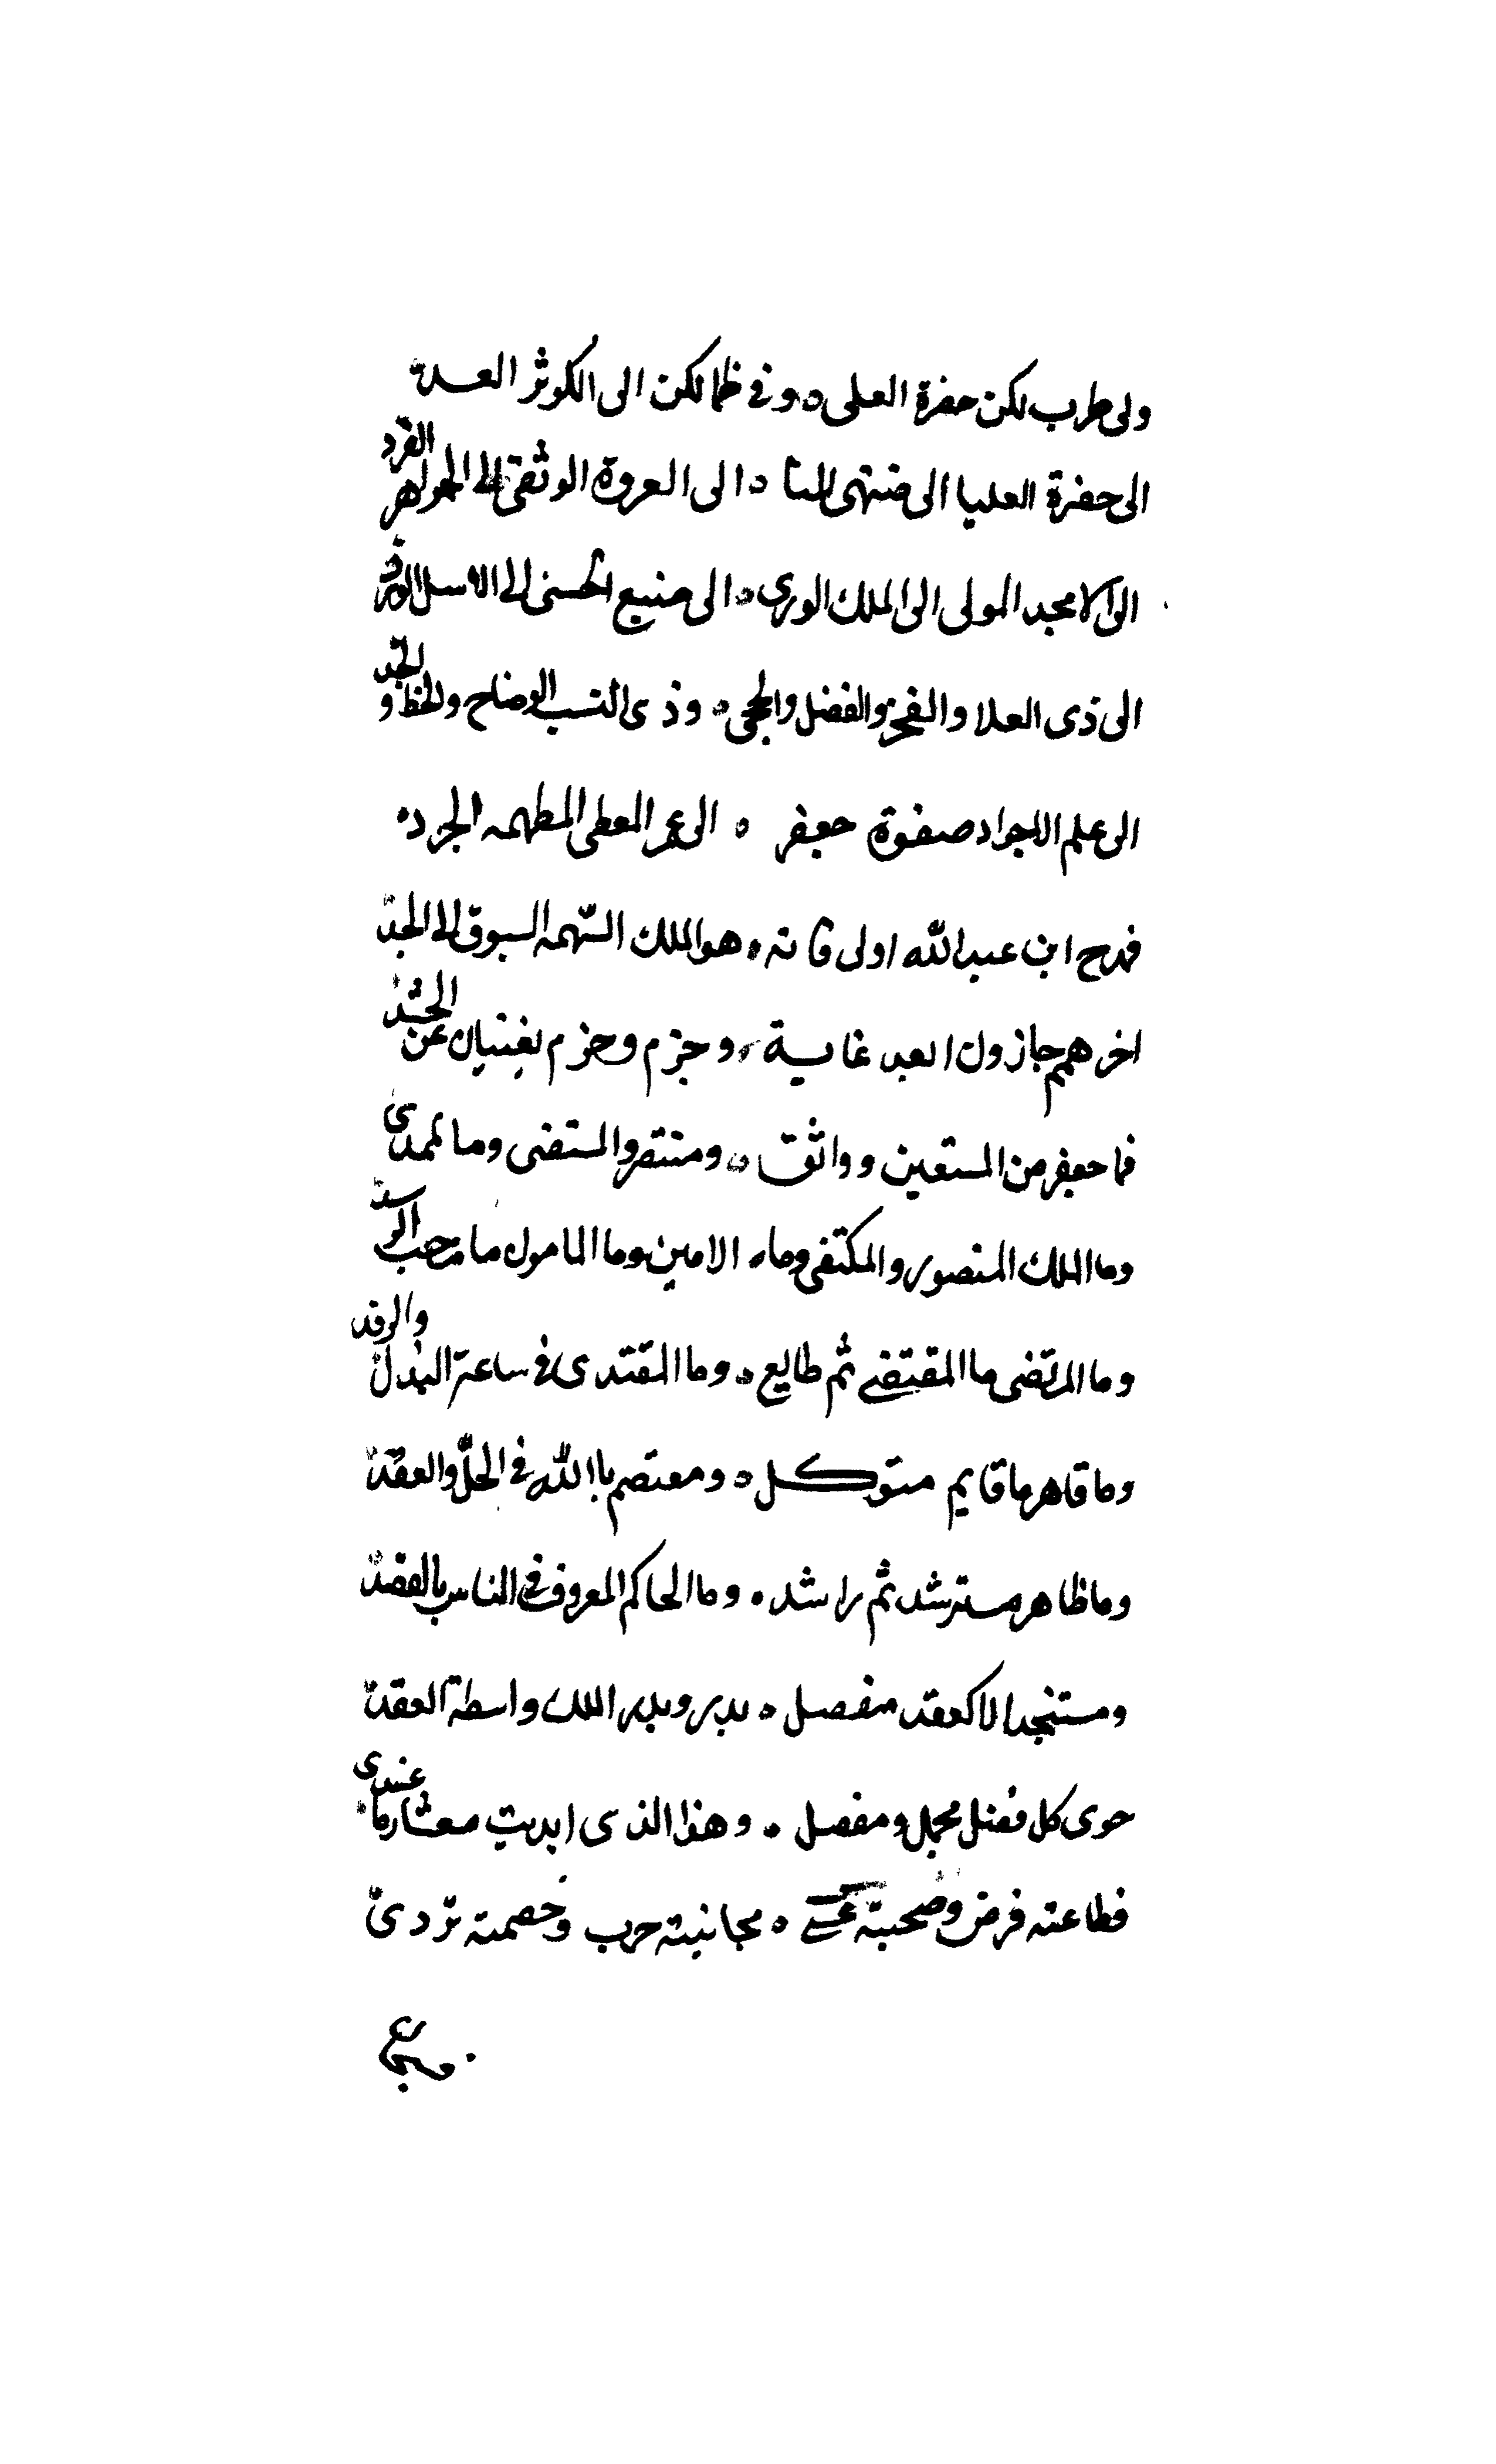 ولى طرب لكن حضرة العلى ٥ وفي ظما لكن الى الكوثر العد
الى حضرة العليا الى منتهى المنا ٥ الى العروة الوثقى الى الجواهر الفرد
الى الامجد المولى الى الملك الورى ٥ الى منبع الحسنى الى الاسل الورد
الى ذى العلا والفخر والفضل والحجى ٥ وذى النسب الوضاح والحظ والجد
الى علم الاجواد صفوة جعفر ٥ الى عمر المعطى المطهمه الجرد
فمدح ابن عبد الله اولى فانه ٥ هو الملك الشهم السبوق الى المجد
اخر همم جازون العبد غاية ٥ وجزم وحزم يغنيان عن الحشد
فما جعفر من المستعين وواثق ٥ ومنتصر والمستضى وما لمهدى
وما الملك المنصور والمكتفى وما ٥ الامين وما المامون ما صاحب
وما المرتضى ما المقتفى ثم طايع ٥ وما المقتدى في ساعة البذل والرفد
وما قاهر ما قايم متوكل ٥ ومعتصم باالله في الحل والعقد
وما ظاهر مسترشد ثم راشد ٥ وما الحاكم المعروف في الناس بالقصد
ومستنجد الا كعقد منفصل ٥ بدر وبدر الملك واسطة العقد
حوى كل فضل مجمل ومفصل ٥ وهذا الذى ابديت معشار ما عندى
فطاعته فرض وصحبته ٥ مجانبته حرب وخصمته تردى